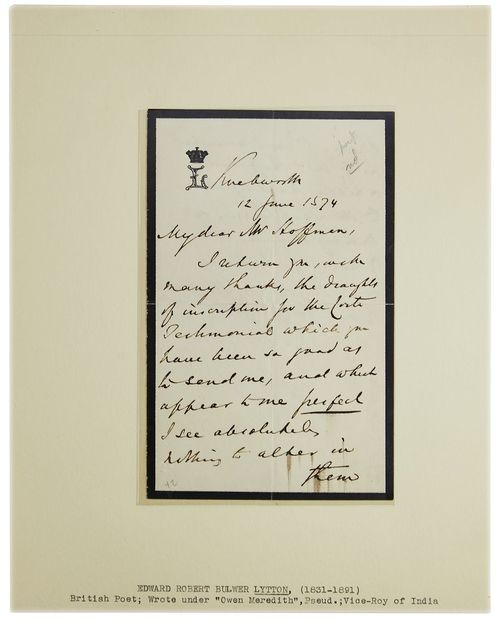 L
Knebworth
12 June 1874
My dear Mr Hoffman,
I return you, with
many thanks, the draughts
of inscription for the
Testimonial which you
have been so good as
to send me, and which
appear to me perfect
I see absolutely
nothing to alter in
them
EDWARD ROBERT BULWER LYTTON, (1831-1891)
British Poet; Wrote under "Owen Meredith",Pseud.;Vice-Roy of India